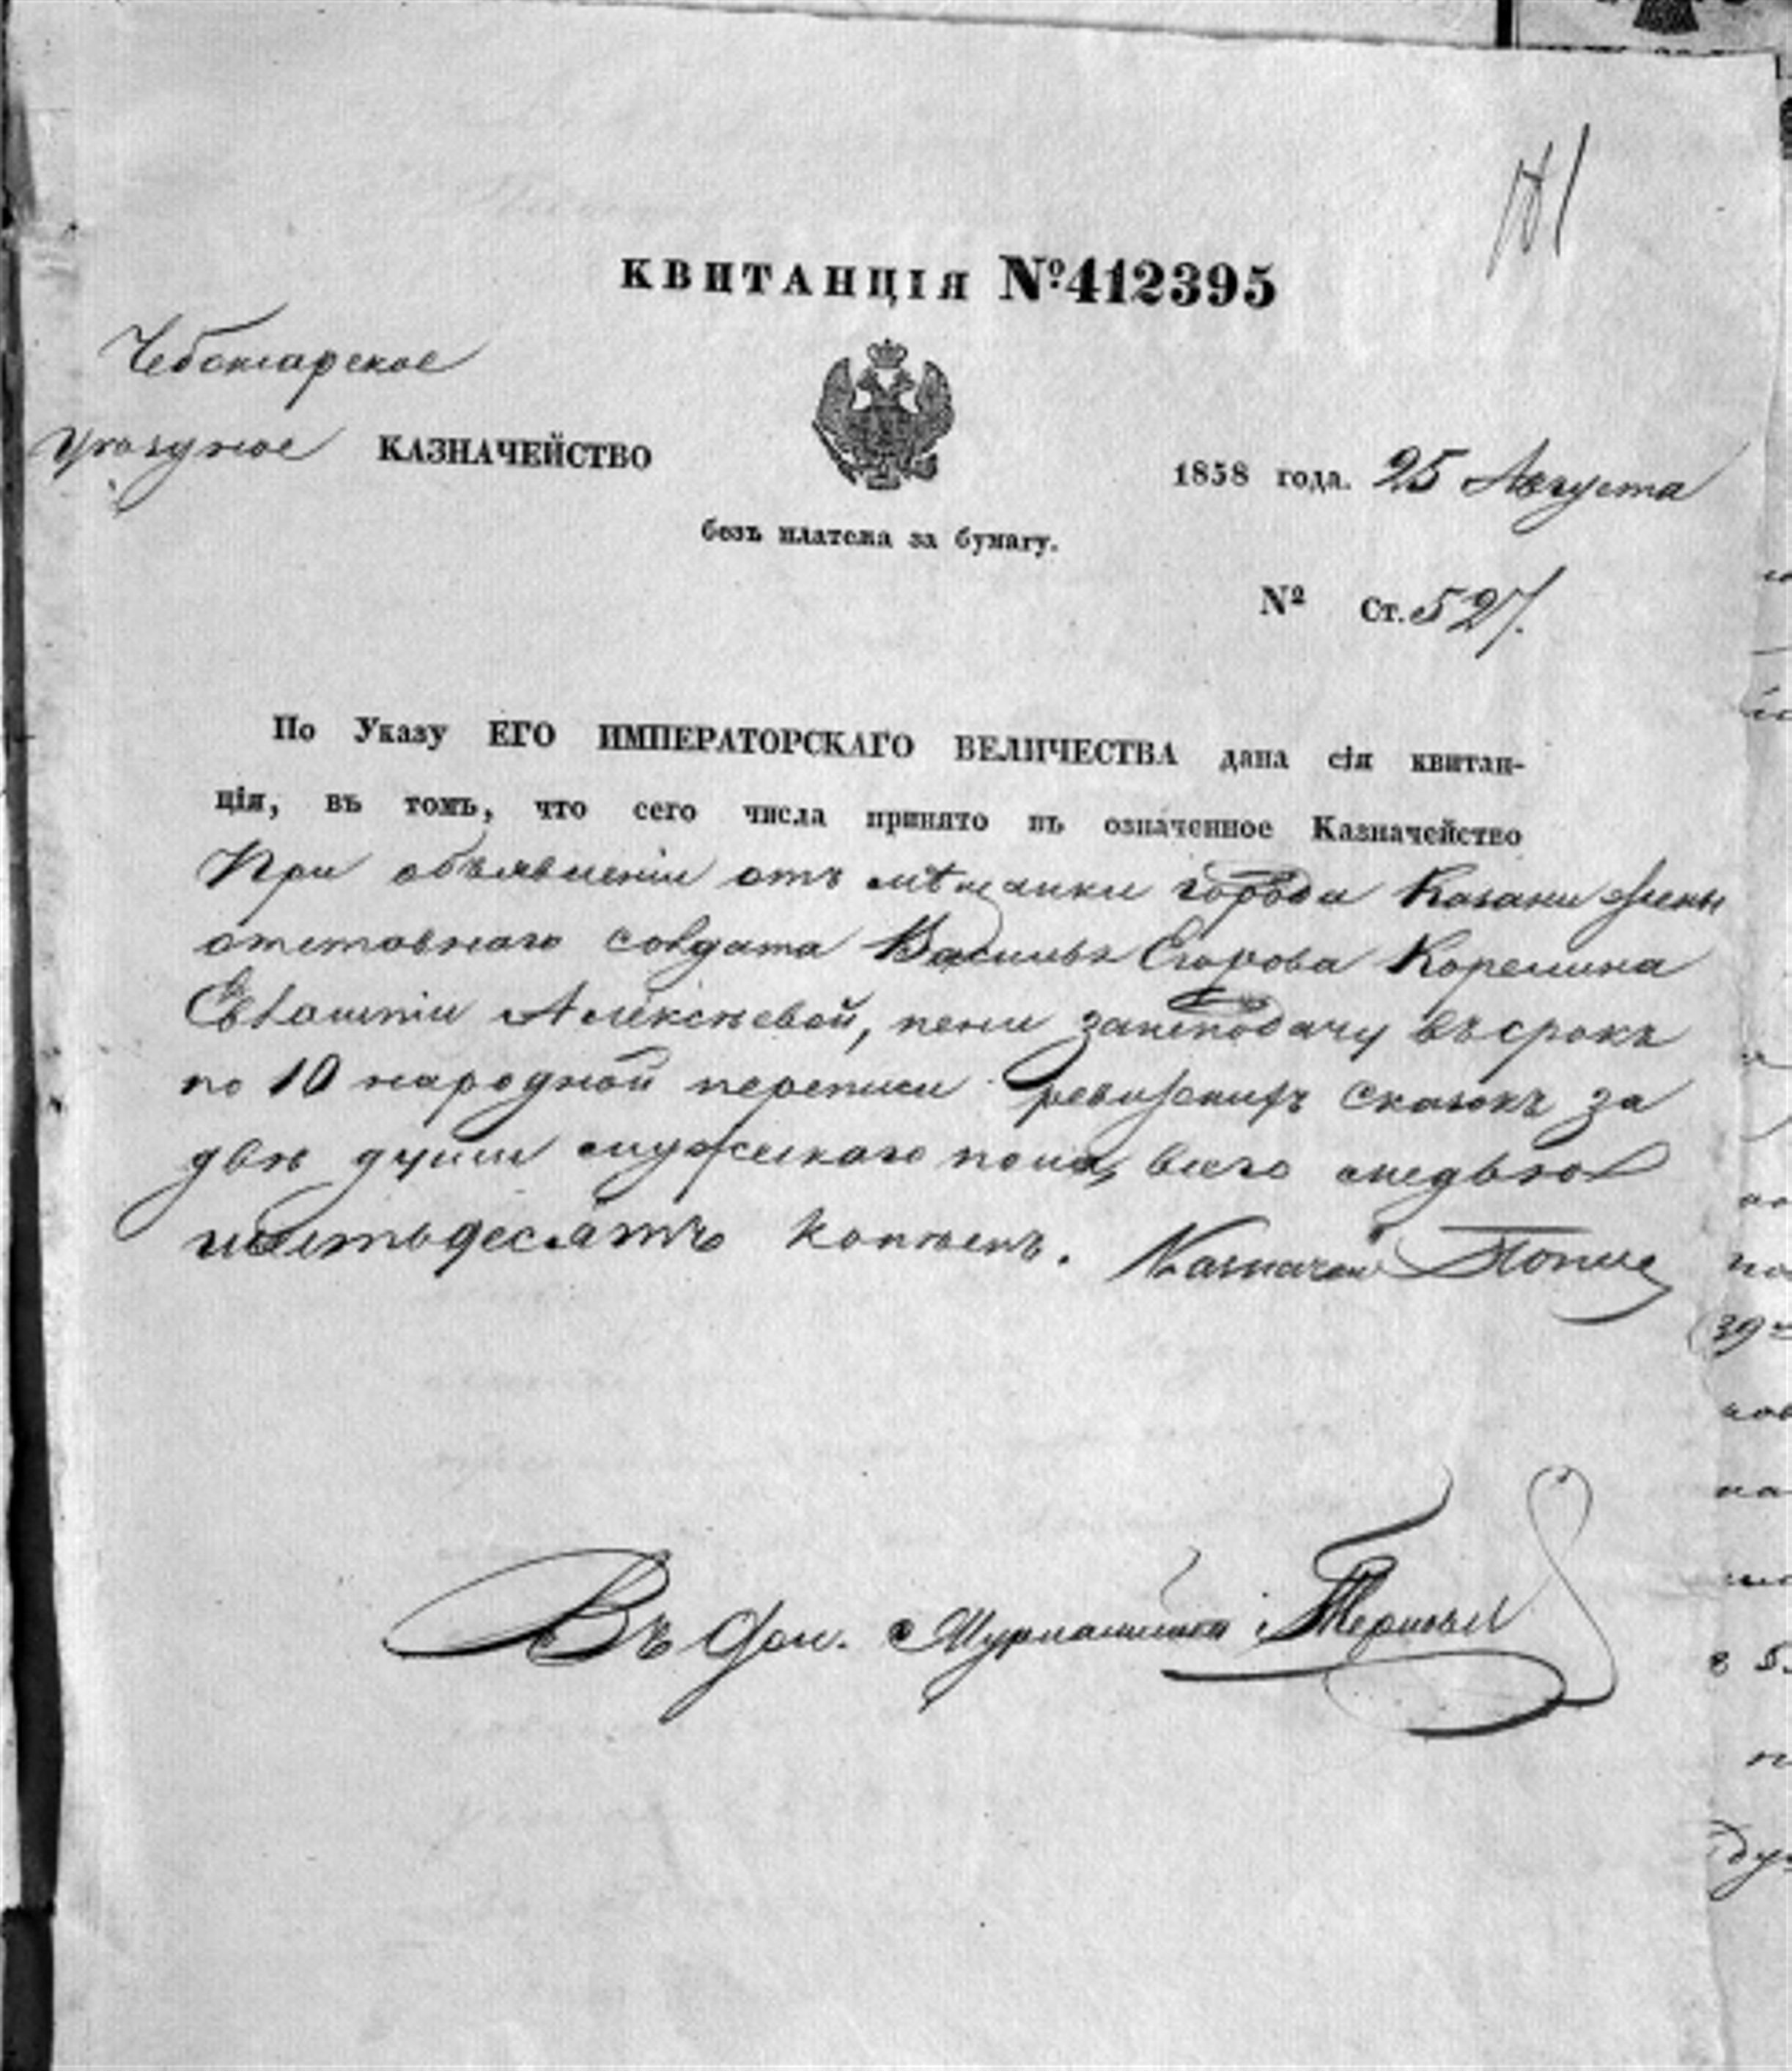 КВИТАНЦІЯ №412395
Чебоксарское
Уѣздное КАЗНАЧЕЙСТВО
1858 года. 25 Августа
безъ платежа за бумагу.
№ Ст. 527.
По Указу ЕГО ИМПЕРАТОРСКАГО ВЕЛИЧЕСТВА дана сія квитан-
ція, въ томъ, что сего числа принято въ означенное Казначейство
При объявленіи отъ мѣщанки города Казани жены
отставнаго солдата Василья Егорова Корелина
Алексѣевой, пени занеподачу въ срокъ
по 10 народной переписи ревизскихъ сказокъ за
двѣ души мужескаго пола, всего медью
шестьдесятъ копѣекъ. Казначей